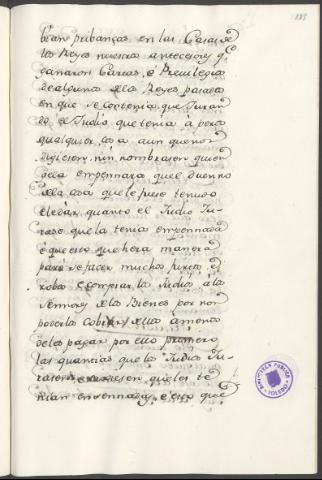 115
bian pribanças en las Casas de
los Reyes nuestros antecesores q̃
ganaron Cartas, é Previlegios
de algunos de los Reyes pasados
en que se contenia que Juran
do el Judio que tenia à peños
qualquier cosa aun que non
digiesen nin nombrasen quien
gela empennara que el duenno
de la cosa que le fuese tenudo
de dar quanto el Judio Ju
rase que la tenia empennada
é que esto que hera manera
para se facer muchos furtos, é
robos é comprar los Judios à los
Sennores de los Bienes por non
poderlos cobrar de ellos amenos
de les pagar por ello primero
las quantias que los Judios Ju
rasen que les te
nian empennados, é esto que
BIBLIOTECA PUBLICA
TOLEDO